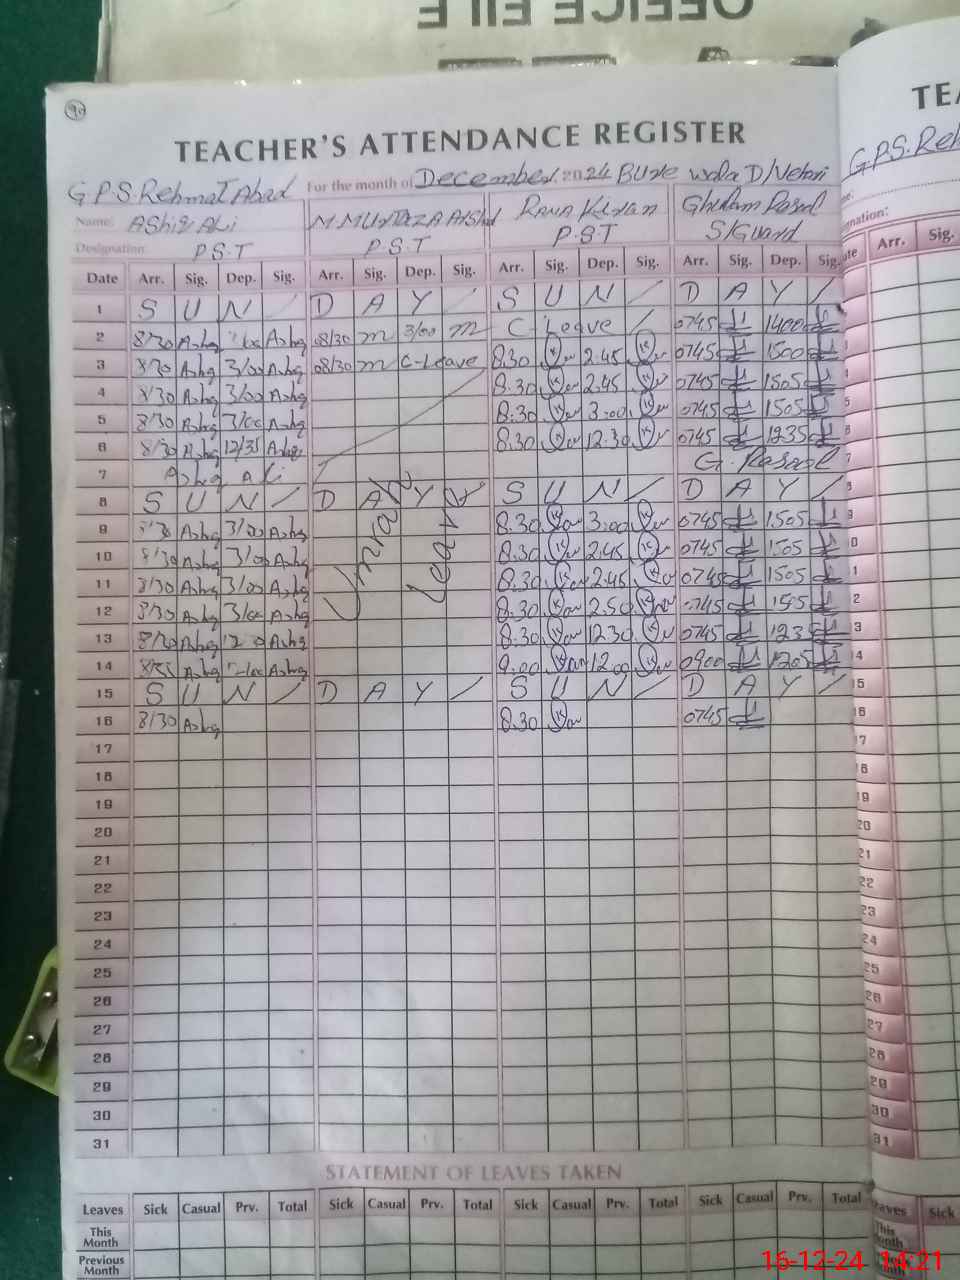 OFFICE FILE
90
TEACHER'S ATTENDANCE REGISTER
G.P.S. Rehmat Abad For the month of December 2024 Bure wala D/Vehari
Name: AShiq Ali M. MURTAZA Arshad RANA Kiran Ghulam Rasool
Designation: P.S.T P.S.T P.S.T S/Guard
Date Arr. Sig. Dep. Sig. Arr. Sig. Dep. Sig. Arr. Sig. Dep. Sig. Arr. Sig. Dep. Sig.
1 S U N / D A Y / S U N / D A Y /
2 8/30 Ashq Ashq 08/30 m 3/00 m C-Leave / 0745 1400
3 8/30 Ashq 3/00 Ashq 08/30 m C-Leave 8.30 2.45 0745 1500
4 8/30 Ashq 3/00 Ashq 8.30 2.45 0745 1505
5 8/30 Ashq 3/00 Ashq 8.30 3.00 0745 1505
6 8/30 Ashq 12/35 Ashq 8.30 12.30 0745 1235
7 Ashq Ali G. Rasool
8 S U N / D A Y / S U N / D A Y /
Umrah Leave
9 8/30 Ashq 3/00 Ashq 8.30 3.00 0745 1505
10 8/30 Ashq 3/00 Ashq 8.30 2.45 0745 1505
11 8/30 Ashq 3/00 Ashq 8.30 2.45 0745 1505
12 8/30 Ashq 3/00 Ashq 8.30 2.50 0745 1505
13 8/30 Ashq Ashq 8.30 12.30 0745 1235
14 Ashq Ashq 9.00 12.00 0900 1205
15 S U N / D A Y / S U N / D A Y /
16 8/30 Ashq 8.30 0745
17
18
19
20
21
22
23
24
25
26
27
28
29
30
31
STATEMENT OF LEAVES TAKEN
Leaves Sick Casual Prv. Total Sick Casual Prv. Total Sick Casual Prv. Total Sick Casual Prv. Total
This Month
Previous Month
G.P.S. Reh
Arr. Sig.
Sick
16-12-24 14:21